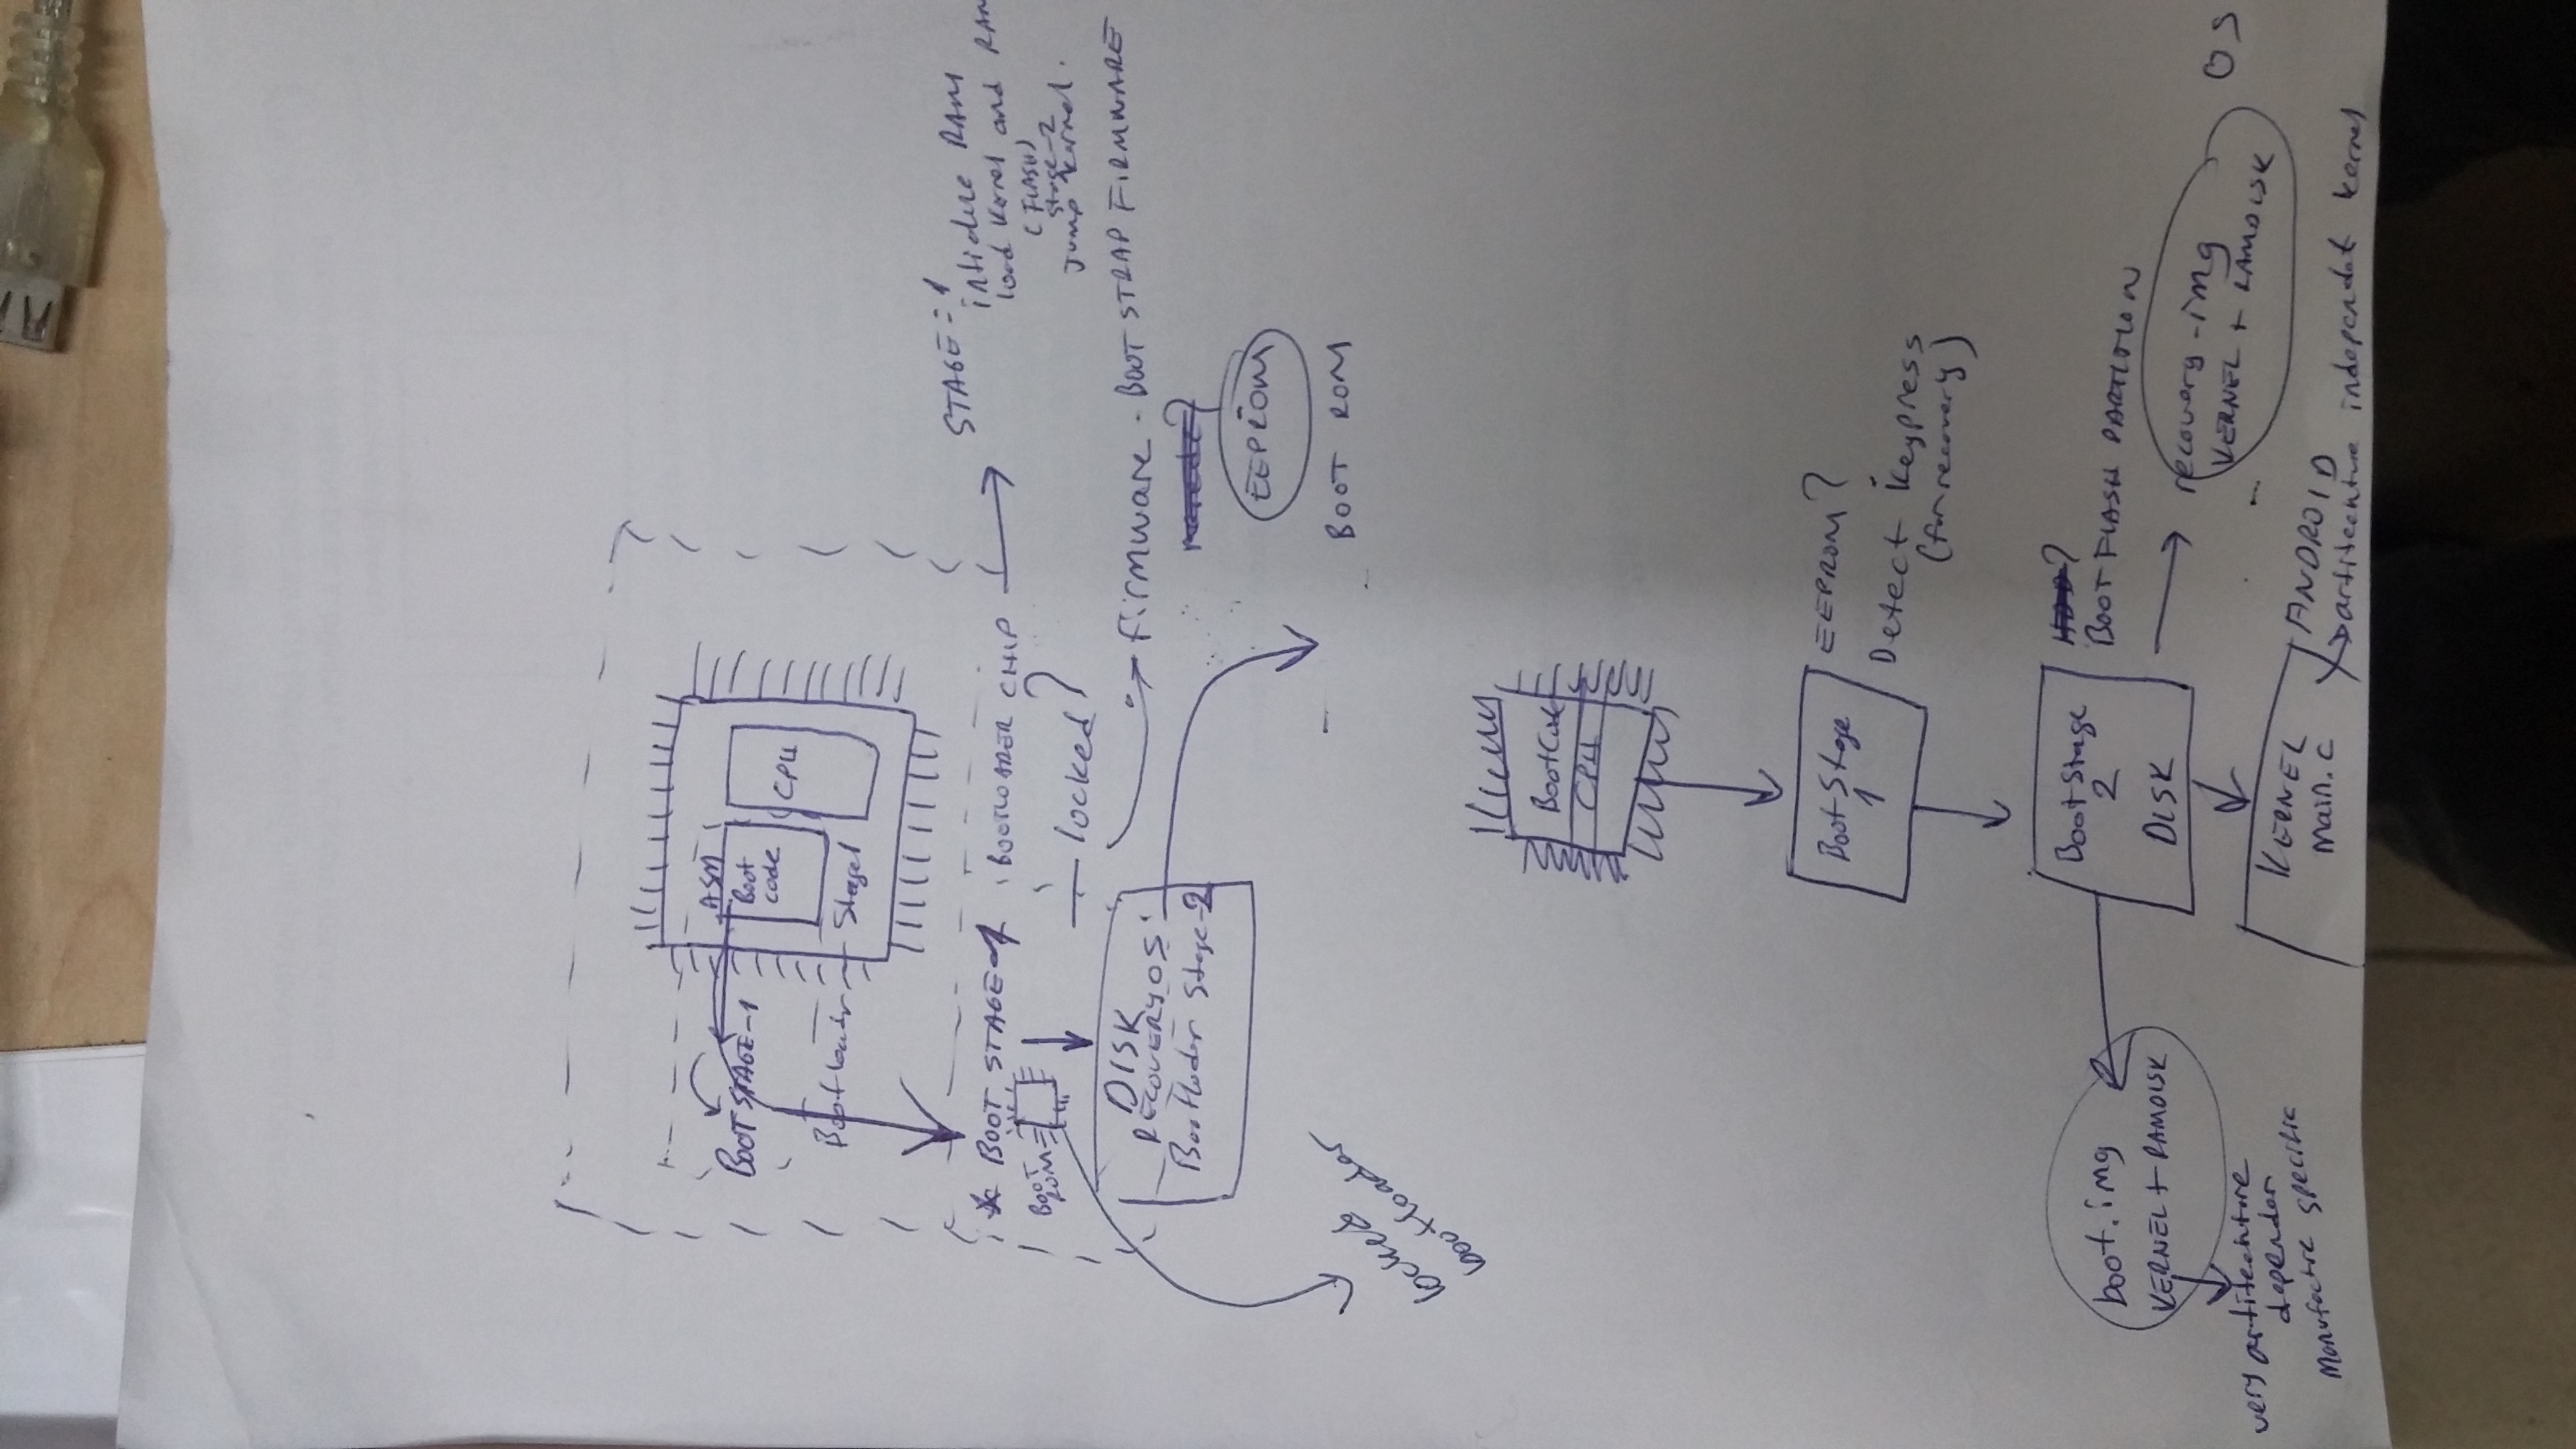 ASM
BOOT STAGE-1
Boot
code
CPU
Bootloadr
Stage1
STAGE=1
RAM
load Kernel and RAM
(FLASH)
stage-2
Jump kernel.
* BOOT STAGE-1
BOOTLOADER CHIP
BOOT
ROM
locked?
DISK
RECOVERY OS
Bootloder Stage-2
firmware - BOOTSTRAP FIRMWARE
?
EEPROM
BOOT ROM
locked
bootloader
BootCode
CPU
Boot Stage
1
EEPROM?
Detect keypress
(for recovery)
Boot Stage
2
DISK
HDD?
BOOT FLASH PARTITION
boot.img
KERNEL + RAMDISK
very artitechture
dependar
Manufactre specific
recovery-img
KERNEL + RAMDISK
OS
KERNEL
main.c
ANDROID
artitechture independat kernel